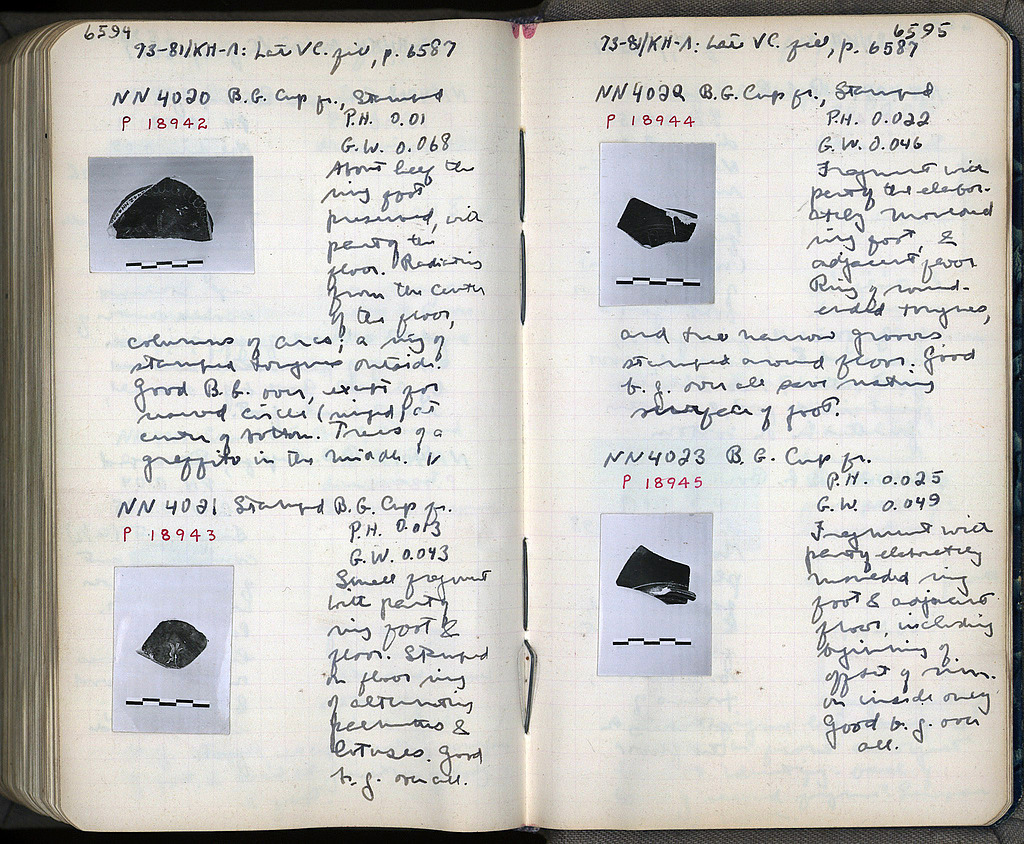 6594
93-81/KH-Λ: Late V C. fill, p. 6587
NN 4020 B.G. Cup fr., Stamped
P 18942
P.H. 0.01
G.W. 0.068
About half the
ring foot
preserved, with
part of the
floor. Radiating
from the center
of the floor,
columns of arcs; a ring of
stamped tongues outside.
Good B.G. over, except for
reserved circle (ringed) at
center of bottom. Traces of a
graffito in the middle.
NN 4021 Stamped B.G. Cup fr.
P 18943
P.H. 0.013
G.W. 0.043
Small fragment
with part of
ring foot &
floor. Stamped
on floor ring
of alternating
palmettes &
lotuses. Good
b.g. over all.
6595
93-81/KH-Λ: Late V C. fill, p. 6587
NN 4022 B.G. Cup fr., Stamped
P 18944
P.H. 0.022
G.W. 0.046
Fragment with
part of the elabor-
ately moulded
ring foot, &
adjacent floor
Ring of round-
ended tongues,
and two narrow grooves
stamped around floor. Good
b.g. over all save resting
surface of foot.
NN 4023 B.G. Cup fr.
P 18945
P.H. 0.025
G.W. 0.049
Fragment with
part of elaborately
moulded ring
foot & adjacent
floor, including
beginning of
offset of rim.
on inside only
Good b.g. over
all.